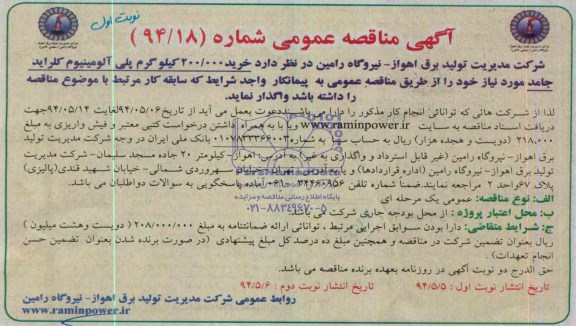 نوبت اول
آگهی مناقصه عمومی شماره (۹۴/۱۸)
شرکت مدیریت تولید برق اهواز- نیروگاه رامین در نظر دارد خرید ۲۰۰/۰۰۰ کیلو گرم پلی آلومینیوم کلراید
جامد مورد نیاز خود را از طریق مناقصه عمومی به پیمانکار واجد شرایط که سابقه کار مرتبط با موضوع مناقصه
را داشته باشد واگذار نماید.
لذا از شرکت هائی که توانائی انجام کار مذکور را دارا می باشند دعوت بعمل می آید از تاریخ ۹۴/۰۵/۰۶ لغایت ۹۴/۰۵/۱۴ جهت
دریافت اسناد مناقصه به سایت www.raminpower.ir و یا با به همراه داشتن درخواست کتبی معتبر و فیش واریزی به مبلغ
۲۱۸,۰۰۰ (دویست و هجده هزار) ریال به حساب بانک ملی ایران در وجه شرکت مدیریت تولید
برق اهواز- نیروگاه رامین (غیر قابل استرداد و واگذاری به غیر) به آدرس: اهواز- کیلومتر ۲۰ جاده مسجد سلیمان- شرکت مدیریت
تولید برق اهواز- نیروگاه رامین (اداره قراردادها) و یا تهران- سهروردی شمالی- خیابان شهید قندی (پالیزی)
پلاک ۶۷ واحد ۲ مراجعه نمایند. ضمناً شماره تلفن آماده پاسخگویی به سوالات داوطلبان می باشد.
پایگاه اطلاع رسانی مناقصه و مزایده
۰۲۱-۸۸۳۴۹۶۷۰-۵
الف: نوع مناقصه: عمومی یک مرحله ای
ب: محل اعتبار پروژه: از محل بودجه جاری شرکت می باشد.
ج: شرایط متقاضی: دارا بودن سوابق اجرایی مرتبط، توانائی ارائه ضمانتنامه به مبلغ ۲۰۸/۰۰۰/۰۰۰ (دویست وهشت میلیون)
ریال بعنوان تضمین شرکت در مناقصه و همچنین مبلغ ده درصد کل مبلغ پیشنهادی (در صورت برنده شدن بعنوان تضمین حسن
انجام تعهدات).
حق الدرج دو نوبت آگهی در روزنامه بعهده برنده مناقصه می باشد.
تاریخ انتشار نوبت اول: ۹۴/۵/۵ تاریخ انتشار نوبت دوم: ۹۴/۵/۶
روابط عمومی شرکت مدیریت تولید برق اهواز- نیروگاه رامین
www.raminpower.ir